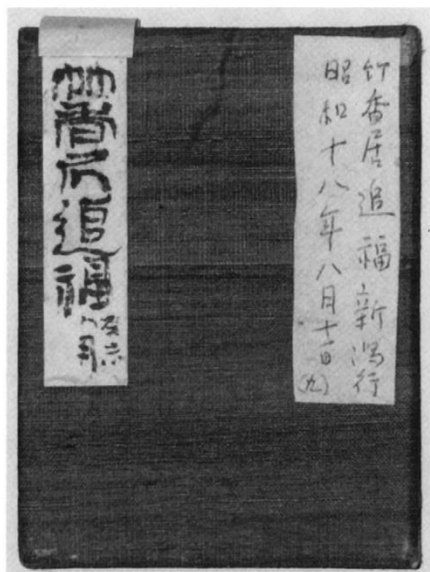 竹香居追福新潟行
昭和十八年八月十一日(九)
竹香居追福
八月